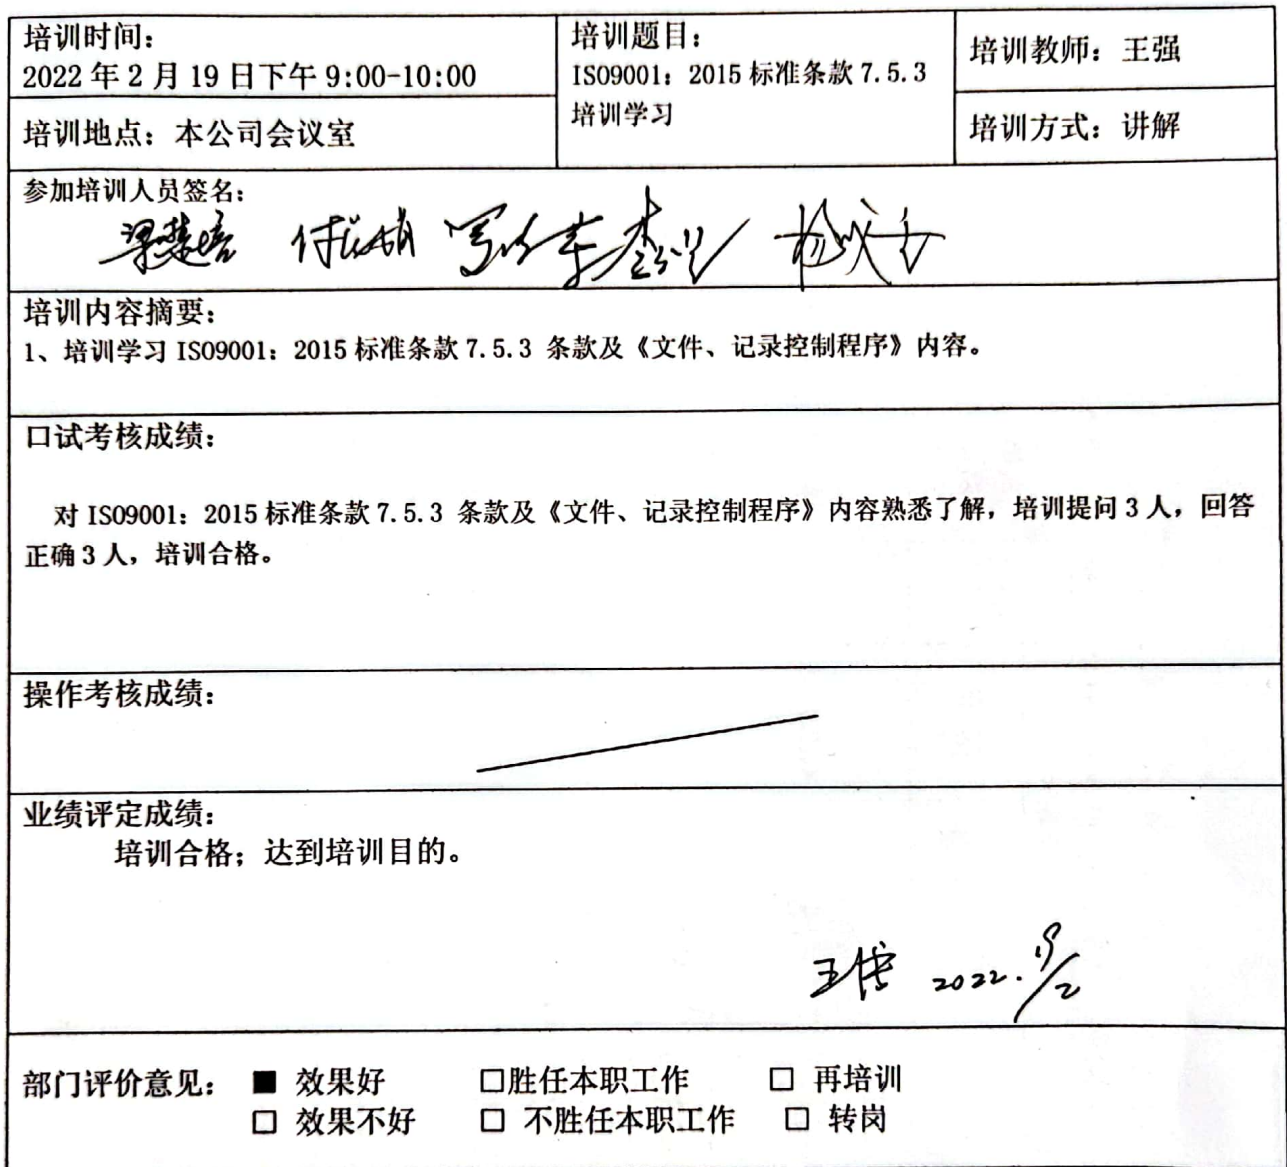 培训时间：
2022 年 2 月 19 日下午 9:00-10:00
培训地点：本公司会议室
培训题目：
ISO9001：2015 标准条款 7.5.3
培训学习
培训教师：王强
培训方式：讲解
参加培训人员签名：
梁楚培
培训内容摘要：
1、培训学习 ISO9001：2015 标准条款 7.5.3 条款及《文件、记录控制程序》内容。
口试考核成绩：
对 ISO9001：2015 标准条款 7.5.3 条款及《文件、记录控制程序》内容熟悉了解，培训提问 3 人，回答
正确 3 人，培训合格。
操作考核成绩：
业绩评定成绩：
培训合格；达到培训目的。
2022. 19/2
部门评价意见： ■ 效果好 □胜任本职工作 □ 再培训
□ 效果不好 □ 不胜任本职工作 □ 转岗